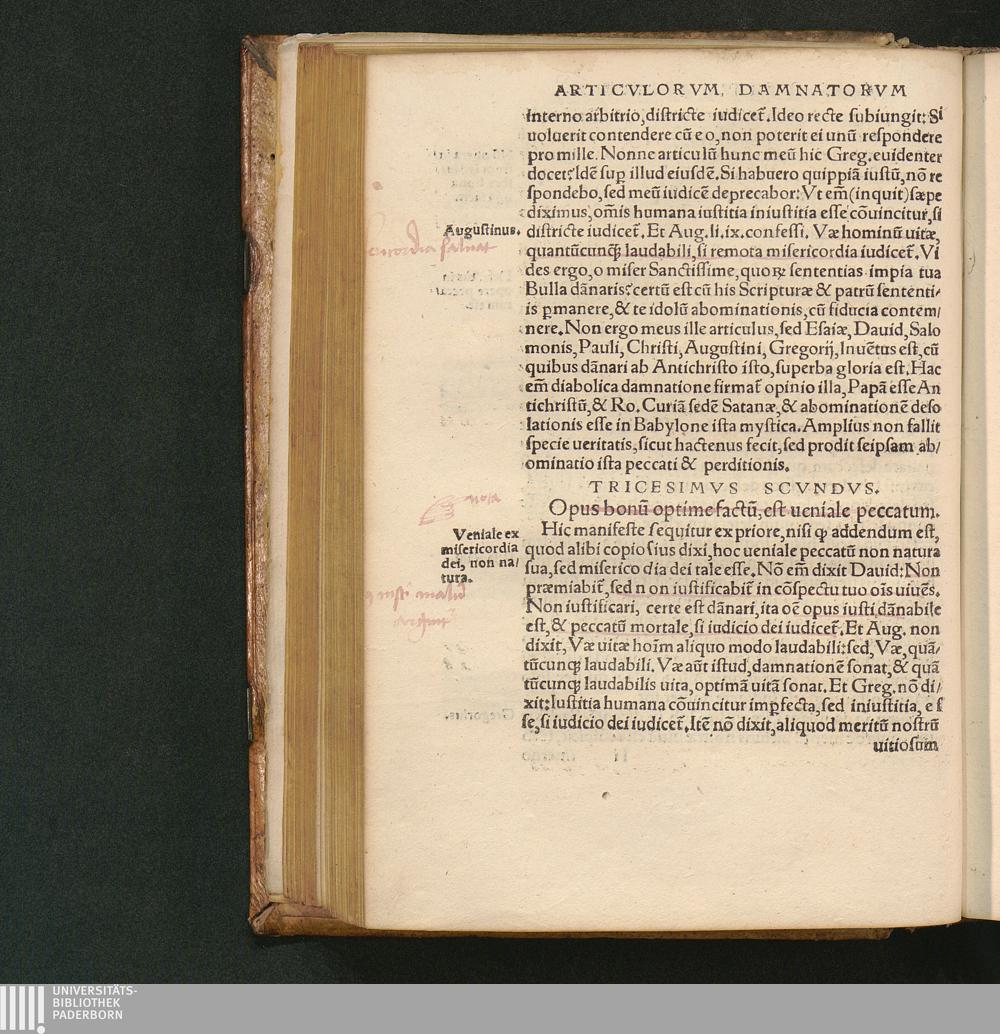 ARTICVLORVM, DAMNATORVM
interno arbitrio, districte iudicet̃. Ideo recte subiungit: Si
uoluerit contendere cũ eo, non poterit ei unũ respondere
pro mille. Nonne articulũ hunc meũ hic Greg. euidenter
docet? Idẽ suꝑ illud eiusdẽ. Si habuero quippiã iustũ, nõ re
spondebo, sed meũ iudicẽ deprecabor: Vt em̃ (inquit) sæpe
diximus, om̃is humana iustitia iniustitia esse cõuincitur, si
Augustinus.
districte iudicet̃. Et Aug. li. ix. confessi. Væ hominũ uitæ,
quantũcunqꝫ laudabili, si remota misericordia iudicet̃. Vi
des ergo, o miser Sanctissime, quoꝝ sententias impia tua
Bulla dãnaris? certũ est cũ his Scripturæ & patrũ sententi/
is ꝑmanere, & te idolũ abominationis, cũ fiducia contem/
nere. Non ergo meus ille articulus, sed Esaiæ, Dauid, Salo
monis, Pauli, Christi, Augustini, Gregorij, Inuẽtus est, cũ
quibus dãnari ab Antichristo isto, superba gloria est. Hac
em̃ diabolica damnatione firmat̃ opinio illa, Papã esse An
tichristũ, & Ro. Curiã sedẽ Satanæ, & abominationẽ deso
lationis esse in Babylone ista mystica. Amplius non fallit
specie ueritatis, sicut hactenus fecit, sed prodit seipsam ab/
ominatio ista peccati & perditionis.
TRICESIMVS SCVNDVS.
nota
Opus bonũ optime factũ, est ueniale peccatum.
Veniale ex
misericordia
dei, non na/
tura.
Hic manifeste sequitur ex priore, nisi ꝙ addendum est,
quod alibi copiosius dixi, hoc ueniale peccatũ non natura
sua, sed misericodia dei tale esse. Nõ em̃ dixit Dauid: Non
præmiabit̃, sed non iustificabit̃ in cõspectu tuo ois uiuẽs.
Non iustificari, certe est dãnari, ita oẽ opus iusti dãnabile
est, & peccatũ mortale, si iudicio dei iudicet̃. Et Aug. non
dixit, Væ uitæ hoim̃ aliquo modo laudabili: sed, Væ, quã/
tũcunqꝫ laudabili. Væ aũt istud, damnationẽ sonat, & quã
tũcunqꝫ laudabilis uita, optimã uitã sonat. Et Greg. nõ di/
xit: Iustitia humana cõuincitur imꝑfecta, sed iniustitia, es
se, si iudicio dei iudicet̃. Itẽ nõ dixit, aliquod meritũ nostrũ
uitiosum
UNIVERSITÄTS-
BIBLIOTHEK
PADERBORN